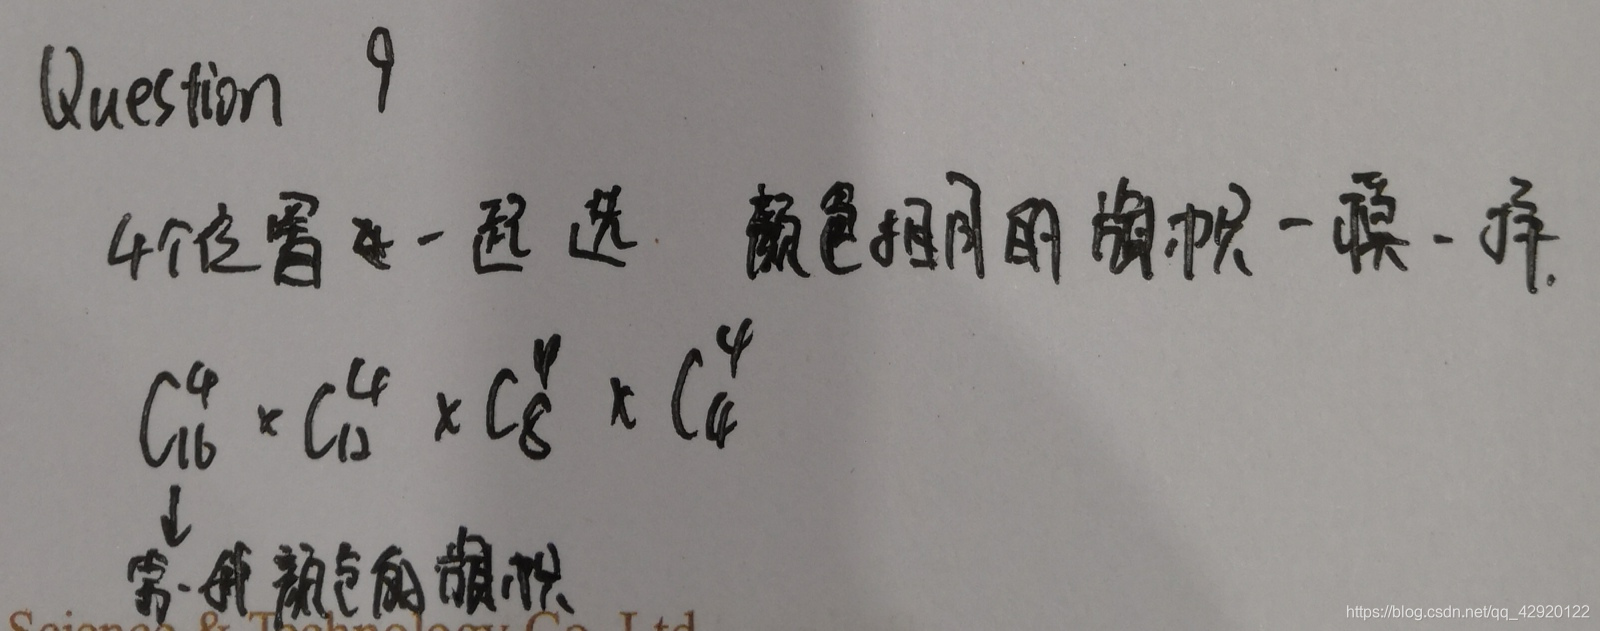 Question 9
4个位置一起选 颜色相同的旗帜一模一样.
C₁₆⁴ × C₁₂⁴ × C₈⁴ × C₄⁴
↓
第一种颜色的旗帜
Science & Technology Co., Ltd
https://blog.csdn.net/qq_42920122